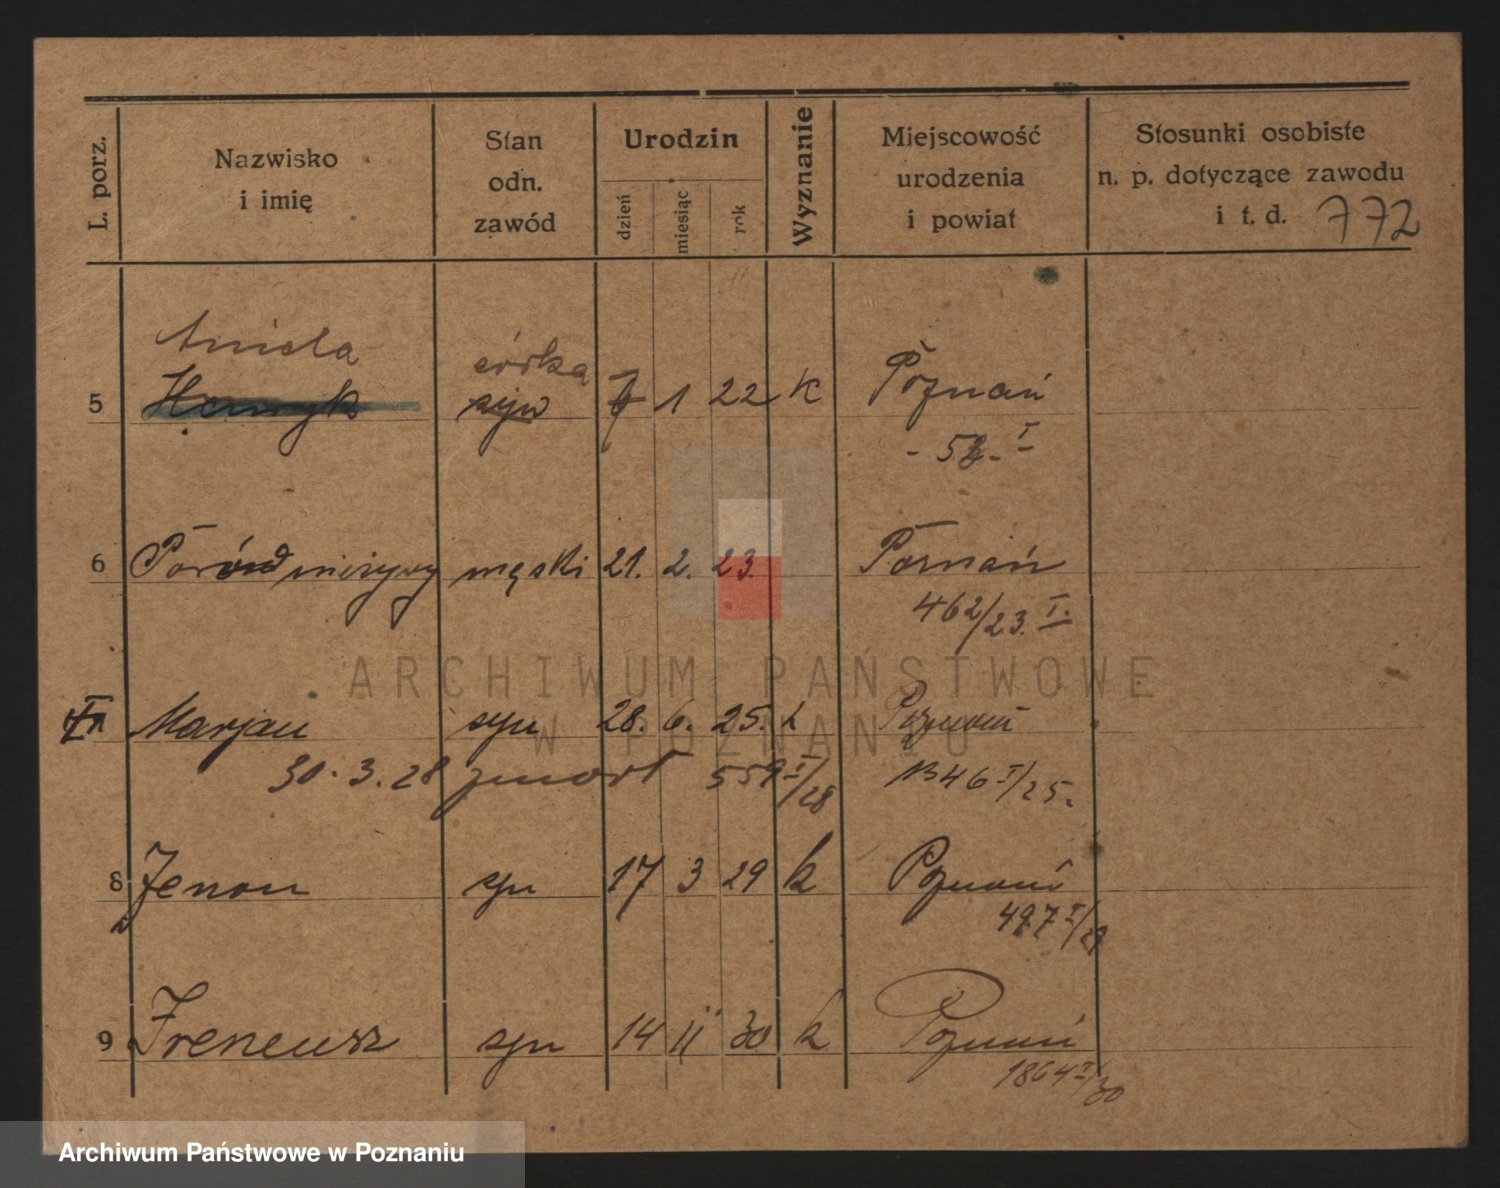 L. porz.
Nazwisko
i imię
Stan
odn.
zawód
Urodzin
dzień
miesiąc
rok
Wyznanie
Miejscowość
urodzenia
i powiat
Stosunki osobiste
n. p. dotyczące zawodu
i t. d. 772
Aniela córka
5 Henryk syn 1 22 k Poznań
6 Poród nieżywy męski 21. 2. 23. Poznań
462/23. I.
Marjan syn 28. 6. 25. k Poznań
30. 3. 28 zmarł 559 I/28 1346 I/25.
8 Zenon syn 17 3 29 k Poznań
497 I/29
9 Ireneusz syn 14 11 30 k Poznań
1864 I/30
ARCHIWUM PAŃSTWOWE
W POZNANIU
Archiwum Państwowe w Poznaniu